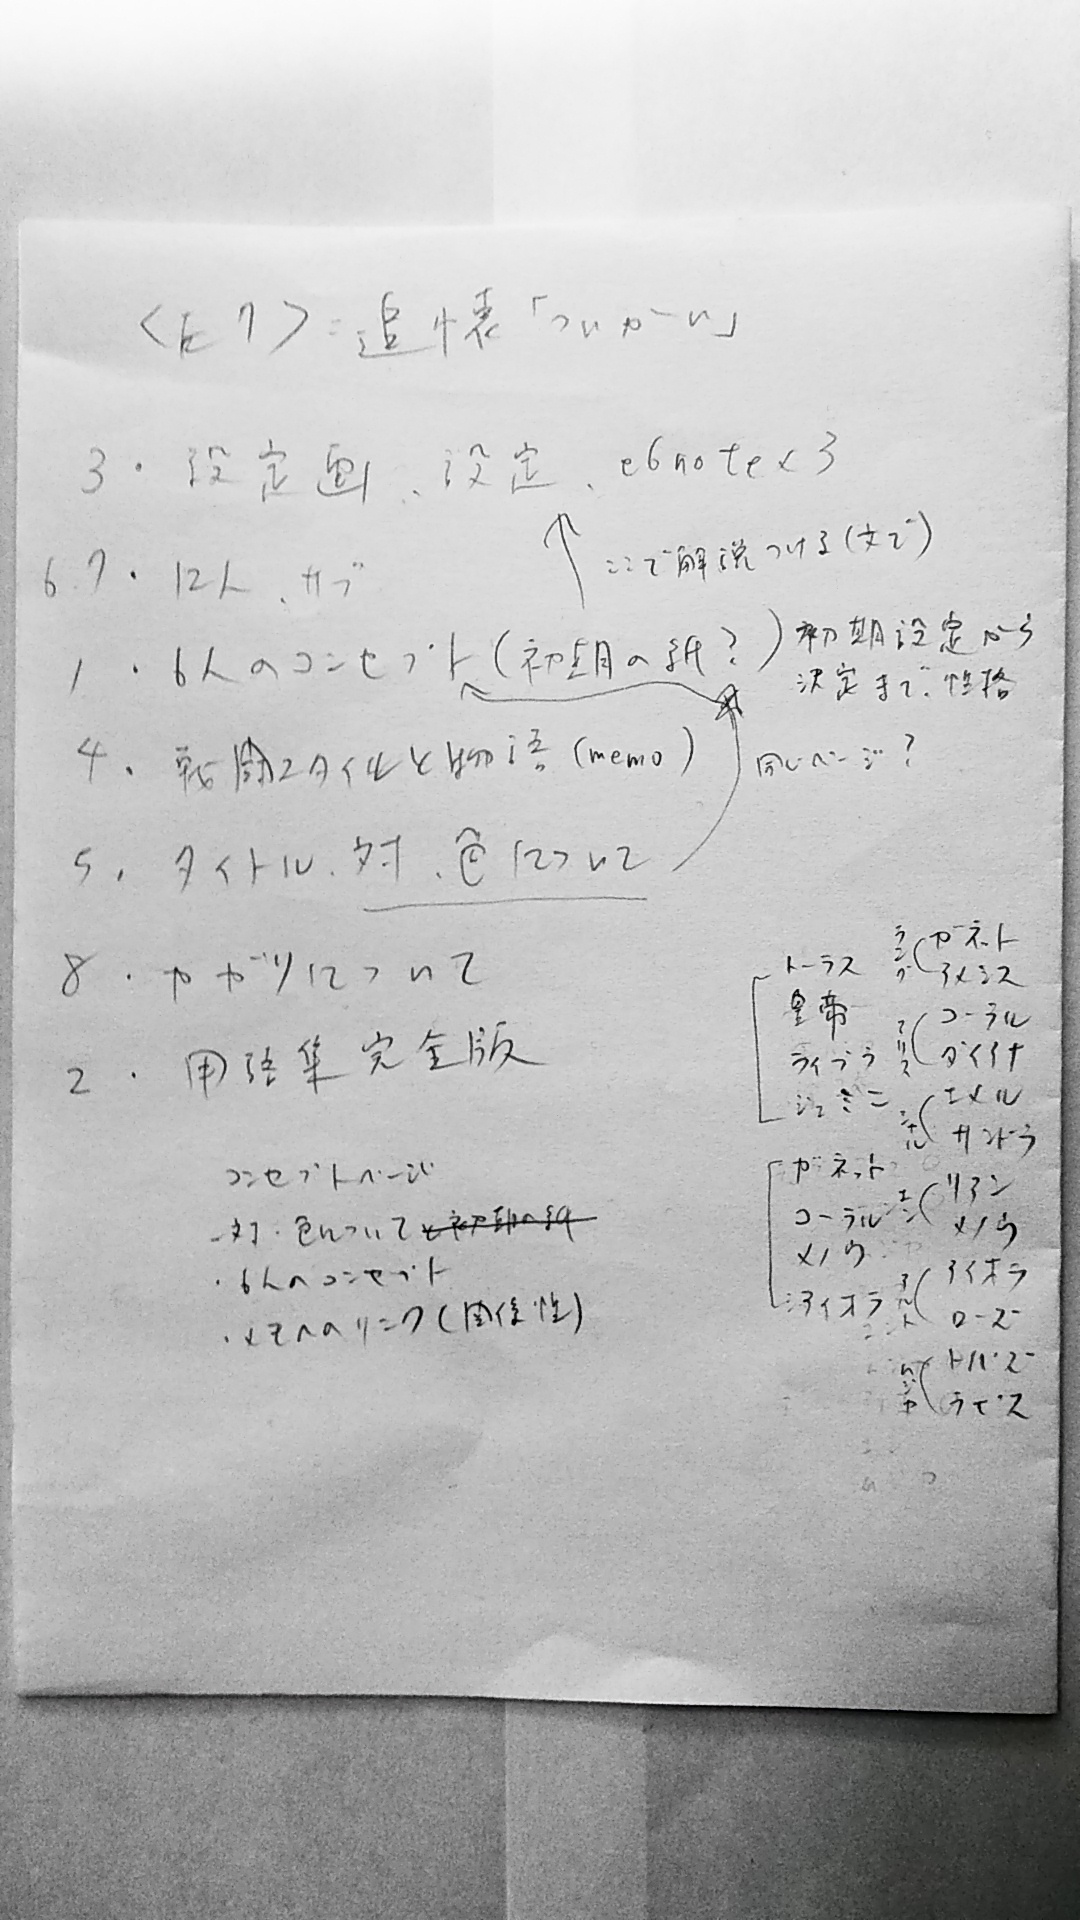 〈E7〉:追懐「ついかい」
3・設定画、設定、e6note×3
ここで解説つける(文で)
6.7・12人、サブ
1・6人のコンセプト(初期の紙?)
初期設定から
決定まで、性格
4・戦闘スタイルと物語(memo)
同じページ?
5・タイトル、対、色について
8・カガリについて
2・用語集完全版
コンセプトページ
・対・色についてと初期の紙
・6人のコンセプト
・メモへのリンク(関係性)
トーラス
皇帝
ライブラ
ジェミニ
ガネット
コーラル
メノウ
アイオラ
ガネット
アメシス
アリス
コーラル
ダイアナ
エメル
サンドラ
リアン
メノウ
アイオラ
ローズ
トパーズ
ラピス